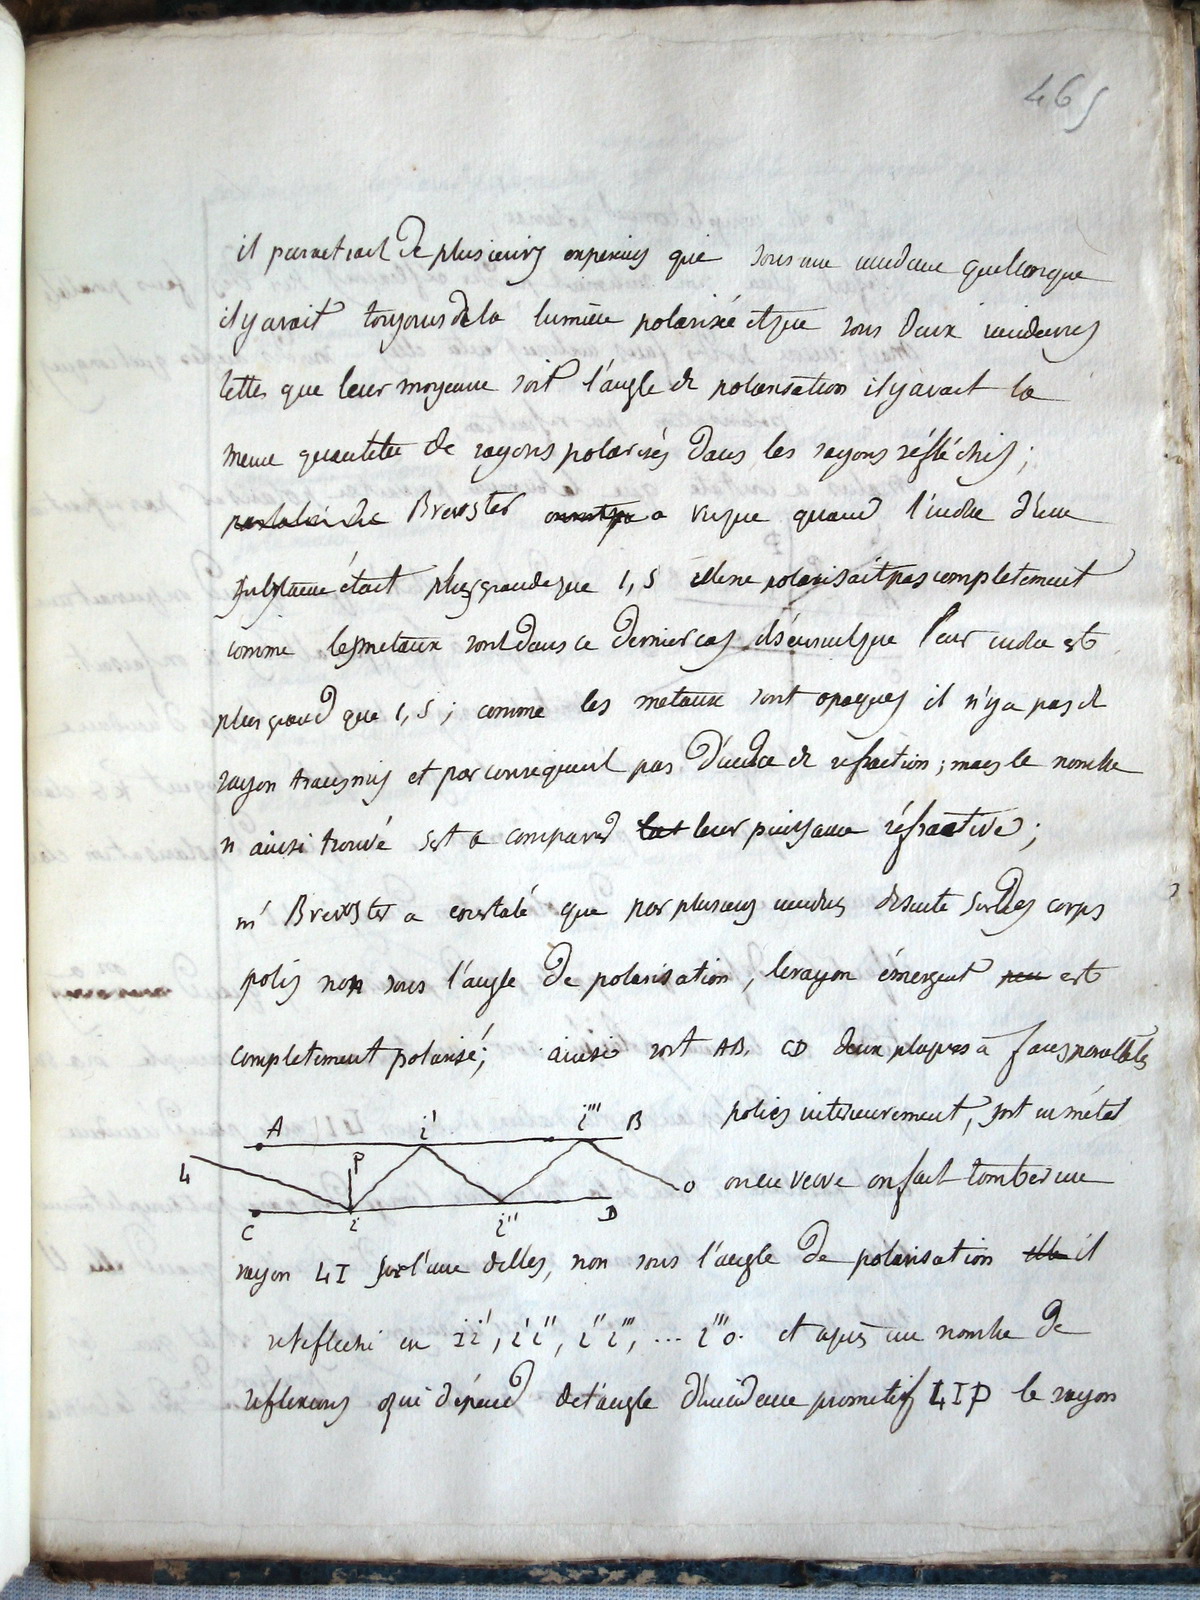 465
il paraitrait de plusieurs experiences que sous une incidence quelconque
il y avait toujours de la lumière polarisée et que sous deux incidences
telles que leur moyenne soit l'angle de polarisation il y avait la
meme quantitée de rayons polarisés dans les rayons réfléchis ;
Brewster a vu que quand l'indice d'une
substance était plus grande que 1,5 elle ne polarisait pas completement
comme les metaux sont dans ce dernier cas il s'ensuit que leur indice est
plus grand que 1,5 ; comme les metaux sont opaques il n'y a pas de
rayon transmis et par consequent pas d'indice de refraction ; mais le nombre
n ainsi trouvé sert a comparer leur puissance réfractive ;
mr Brewster a constaté que par plusieurs incidences de suite sur des corps
polis non sous l'angle de polarisation, le rayon émergent est
completement polarisé ; ainsi soit AB, CD deux plaques à faces paralleles
polies interieurement, soit en métal
A i' i''' B
L P O
C i i'' D
ou en verre on fait tomber un
rayon LI sur l'une d'elles, non sous l'angle de polarisation il
se reflechi en ii', i'i'', i''i''', ... i'''o. et après un nombre de
reflexions qui dépend de l'angle d'incidence primitif LIP le rayon